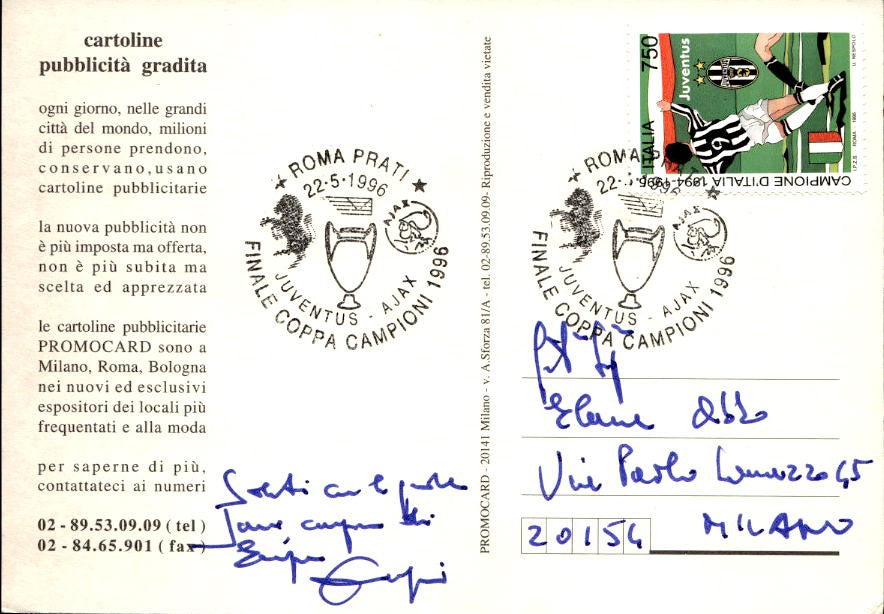 cartoline
pubblicità gradita
ogni giorno, nelle grandi
città del mondo, milioni
di persone prendono,
conservano, usano
cartoline pubblicitarie
la nuova pubblicità non
è più imposta ma offerta,
non è più subita ma
scelta ed apprezzata
le cartoline pubblicitarie
PROMOCARD sono a
Milano, Roma, Bologna
nei nuovi ed esclusivi
espositori dei locali più
frequentati e alla moda
per saperne di più,
contattateci ai numeri
02 - 89.53.09.09 ( tel )
02 - 84.65.901 ( fax )
ROMA PRATI
22-5-1996
AJAX
JUVENTUS - AJAX
FINALE COPPA CAMPIONI 1996
PROMOCARD - 20141 Milano - v. A.Sforza 81/A - tel. 02-89.53.09.09- Riproduzione e vendita vietate
ROMA PRATI
22-5-1996
AJAX
JUVENTUS - AJAX
FINALE COPPA CAMPIONI 1996
750
ITALIA
Juventus
CAMPIONE D'ITALIA 1994-1995
I.P.Z.S. - ROMA - 1995
U. NESPOLO
Via Paolo 45
20154 MILANO